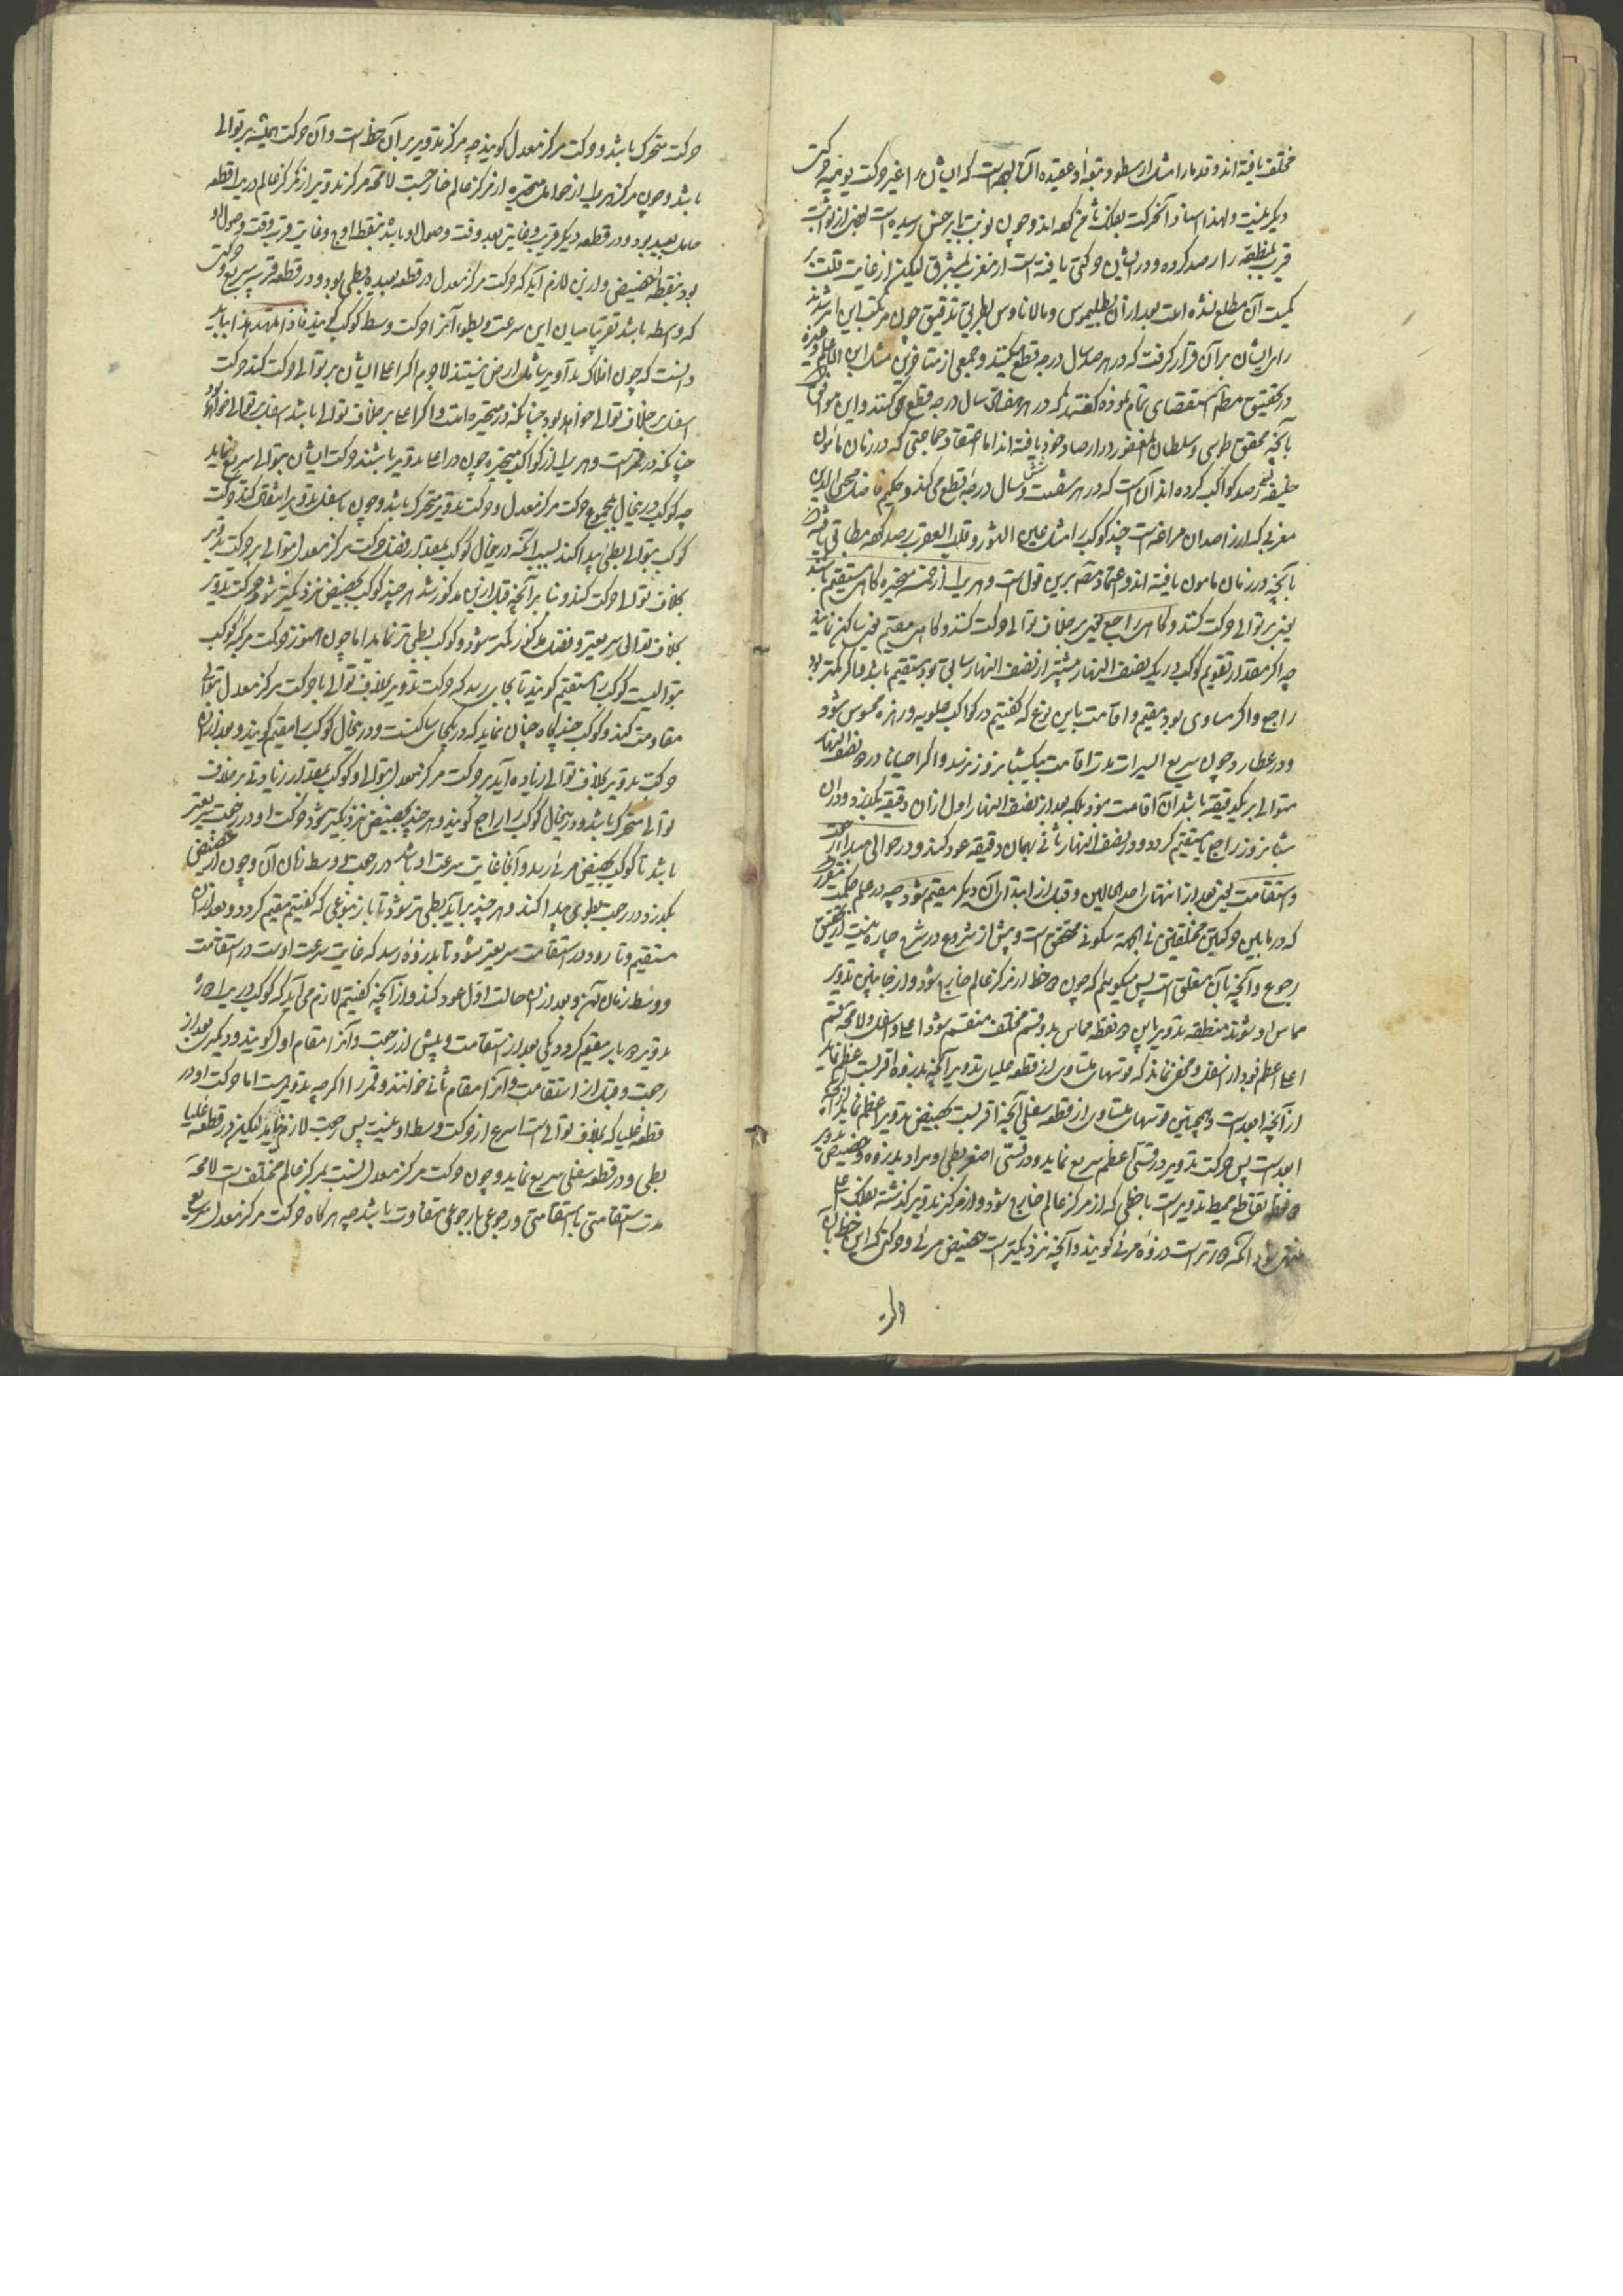 مختلف یافته اند و قدما را مثل ارسطو و تبعه او عقیده آن بوده است که ایشان را غیر حرکت یومیه حرکت
دیگر نیست و لهذا اسناد آن حرکت بفلک ثامن کرده اند و چون نوبت بابرخس رسیده است بعضی از ثوابت
قریب بمنطقه را رصد کرده و در ایشان حرکتی یافته است از مغرب بمشرق لیکن از غایت قلت بر
کمیت آن مطلع نشده است بعد از آن بطلیموس و مالاناوس بطریق تدقیق چون مرتکب این امر شدند
رای ایشان بر آن قرار گرفت که در هر صد سال درجه قطع میکنند و جمعی از متأخرین مثل ابن الاعلم و غیره
در تحقیق مطلب استقصای تمام نموده گفتند که در هر هفتاد سال درجه قطع می کنند و این موافق است
با آنچه محقق طوسی و سلطان مغفور در ارصاد خود یافته اند اما اعتقاد جماعتی که در زمان مأمون
خلیفه رصد کواکب کرده اند آن است که در هر شصت و شش سال درجه قطع می کند و حکیم فاضل محیی الدین
مغربی که از راصدان مراغه است چند کوکب را مثل عین الثور و قلب العقرب رصد کرده مطابق یافته
با آنچه در زمان مأمون یافته اند و اعتماد بر این قول است و هر یک از خمسه متحیره گاهی مستقیم باشد
یعنی بر توالی حرکت کند و گاهی راجع یعنی بر خلاف توالی حرکت کند و گاهی مقیم یعنی ساکن نماید
چه اگر مقدار تقویم کوکب در یک نصف النهار بیشتر از نصف النهار سابق بود مستقیم باشد و اگر کمتر بود
راجع و اگر مساوی بود مقیم و اقامت باین نوع که گفتیم در کواکب علویه و زهره محسوس شود
و در عطارد چون سریع السیر است مدت اقامت بیک شبانروز نرسد و اگر احیانا در دو نصف النهار
متوالی بر یک دقیقه باشد آن اقامت نبود بلکه بعد از نصف النهار اول از آن دقیقه بگذرد و در آن
شبانروز راجع یا مستقیم گردد و در نصف النهار ثانی بهمان دقیقه عود کند و در حوالی مبدأ رجعت
و استقامت یعنی بعد از انتهای احد الحالین و قبل از ابتدای آن دیگر مقیم شود چه در علم حکمت مقرر
که در مابین حرکتین مختلفتین فی الجهة سکونی متحقق است و پیش از شروع در شرح چاره نیست از تحقیق
رجوع و آنچه بآن متعلق است پس میگوییم که چون دو خط از مرکز عالم خارج شود و از جانبین تدویر
مماس او شوند منطقه تدویر باین دو نقطه مماس بدو قسم مختلف منقسم شود اعلی و اسفل و لا محاله قسم
اعلی اعظم بود از اسفل و مخفی نماند که قوسهای متساوی از قطعه علیای تدویر آنچه بذروه اقرب است اعظم نماید
از آنچه ابعد است و همچنین قوسهای متساوی از قطعه سفلی آنچه اقرب است بحضیض تدویر اعظم نماید از آنچه
ابعد است پس حرکت تدویر در قسی اعظم سریع نماید و در قسی اصغر بطی و مراد بذروه و حضیض تدویر
دو نقطه تقاطع محیط تدویر است با خطی که از مرکز عالم خارج شود و از مرکز تدویر گذشته بفلک اعلی
منتهی شود آنکه دورتر است ذروه مرئی گویند و آنچه نزدیکتر است حضیض مرئی و حرکتی که این خط بآن
حرکت متحرک باشد و حرکت مرکز معدل گویند چه مرکز تدویر بر آن خط است و آن حرکت همیشه بر توالی
باشد و چون مرکز هر یک از حوامل متحیره از مرکز عالم خارجست لا محاله مرکز تدویر از مرکز عالم در یک قطعه
حامل بعید بود و در قطعه دیگر قریب و غایت بعد وقت وصول او باشد بنقطه اوج و غایت قرب وقت وصول او
بود بنقطه حضیض و از این لازم آید که حرکت مرکز معدل در قطعه بعیده بطی بود و در قطعه قریبه سریع و حرکت
که واسطه باشد تقریبا میان این سرعت و بطوء آنرا حرکت وسط کوکب گویند فاذا تمهد هذا بباید
دانست که چون افلاک تداویر شامل ارض نیستند لاجرم اگر اعلی ایشان بر توالی حرکت کند حرکت
اسفل بر خلاف توالی خواهد بود چنانکه در متحیره است و اگر اعلی بر خلاف توالی باشد اسفل بر توالی خواهد بود
چنانکه در قمر است و هر یک از کواکب متحیره چون در اعلی تدویر باشند حرکت ایشان بتوالی سریع نماید
چه کوکب در این حال بمجموع حرکت مرکز معدل و حرکت تدویر متحرک باشد و چون باسفل تدویر انتقال کند حرکت
کوکب بتوالی بطئی پیدا کند بسبب آنکه در این حال کوکب بمقدار فضل حرکت مرکز معدل بتوالی بر حرکت تدویر
بخلاف توالی حرکت کند و بنا بر آنچه قبل از این مذکور شد هر چند کوکب بحضیض نزدیکتر شود حرکت تدویر
بخلاف توالی سریعتر و فضل مذکور کمتر شود و کوکب بطی تر نماید اما چون هنوز حرکت مرکز کوکب
بتوالیست کوکب را مستقیم گویند تا بجایی رسد که حرکت تدویر بخلاف توالی با حرکت مرکز معدل بتوالی
مقاومت کند و کوکب چند گاه چنان نماید که در یکجا ساکنست و در این حال کوکب را مقیم گویند و بعد از آن
حرکت تدویر بخلاف توالی زیاده آید بر حرکت مرکز معدل بتوالی و کوکب بمقدار زیادتی بر خلاف
توالی متحرک باشد و در این حال کوکب را راجع گویند و هر چند بحضیض نزدیکتر شود حرکت او در رجعت سریعتر
باشد تا کوکب بحضیض مرئی رسد و آنجا غایت سرعت او باشد در رجعت و وسط زمان آن و چون از حضیض
بگذرد در رجعت بطوء پیدا کند و هر چند برآید بطی تر شود تا باز بنوعی که گفتیم مقیم گردد و بعد از آن
مستقیم و تا رود در استقامت سریعتر شود تا بذروه رسد که غایت سرعت اوست در استقامت
و وسط زمان آن و بعد از آن حالت اول عود کند و از آنچه گفتیم لازم می آید که کوکب در یک دوره
تدویر دو بار مقیم گردد یکی بعد از استقامت و پیش از رجعت و آنرا مقام اول گویند و دیگری بعد از
رجعت و قبل از استقامت و آنرا مقام ثانی خوانند و قمر را اگر چه تدویر است اما حرکت او در
قطعه علیا که بخلاف توالی است اسرع از حرکت وسط او نیست پس رجعت لازم نیاید لیکن در قطعه علیا
بطی و در قطعه سفلی سریع نماید و چون حرکت مرکز معدل نسبت بمرکز عالم مختلف است لا محاله
مدت استقامتی با استقامتی و رجوعی با رجوعی متفاوت باشد چه هر گاه حرکت مرکز معدل سریع